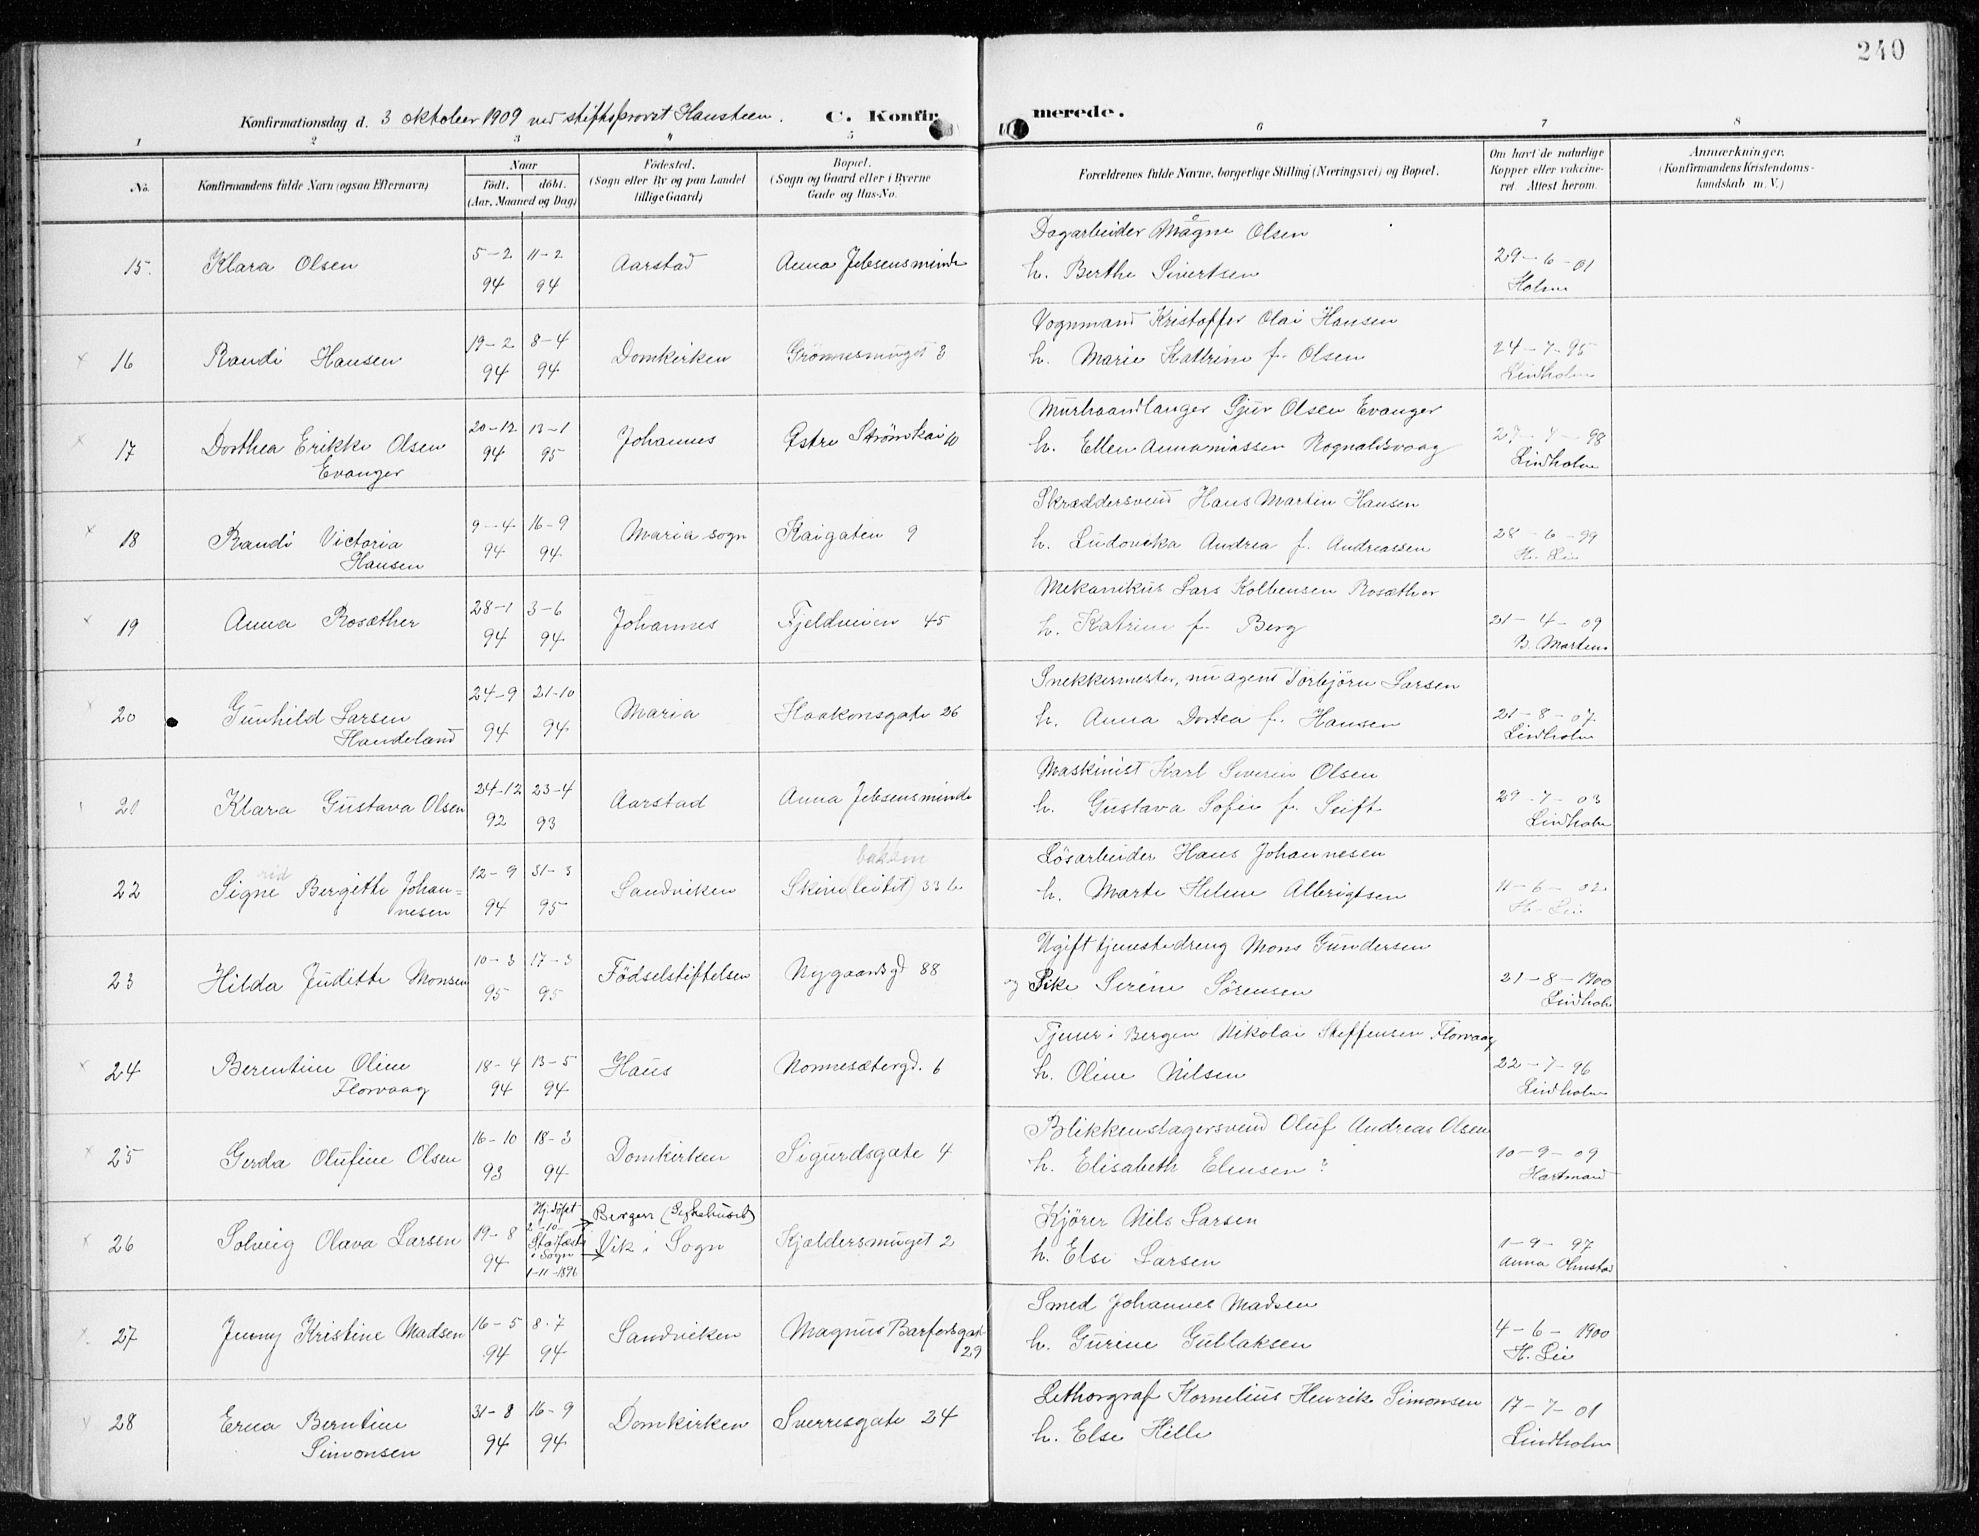 240
Konfirmationsdag d. 3 oktober 1909 ved stiftsprovst Hansteen. C. Konfir merede.
1 2 3 " 5 6 7 8
No. Konfirmandens fulde Navn (ogsaa Efternavn) Naar født. døbt. (Aar, Maaned og Dag) Fødested. (Sogn eller By og paa Landet tillige Gaard) Bopæl. (Sogn og Gaard eller i Byerne Gade og Hus-No. Forældrenes fulde Navne, borgerlige Stilling (Næringsvei) og Bopæl. Om havt de naturlige Kopper eller vakcineret. Attest herom. Anmærkninger. (Konfirmandens Kristendomskundskab m. V.)
15. Klara Olsen 5-2 94 11-2 94 Aarstad Anna Jebsensminde Dagarbeider Magne Olsen
h. Berthe Sivertsen 29-6-01 Holm
16 Randi Hansen 19-2 94 8-4 94 Domkirken Grönnesmuget 3 Vognmand Kristoffer Olai Hansen
h. Marie Kathrine f. Olsen 24-7-95 Lindholm
17 Dorthea Erikke Olsen Evanger 20-12 94 13-1 95 Johannes Østre Strömkai 10 Murhaandlanger Sjur Olsen Evanger
h. Ellen Annaniassen Rognaldsvaag 27-7-98 Lindholm
18 Randi Victoria Hansen 9-4 94 16-9 94 Maria sogn Kaigaten 9 Skræddersvend Hans Martin Hansen
h. Ludovika Andrea f. Andreassen 28-6-99 H. Lie
19 Anna Rosæther 28-1 94 3-6 94 Johannes Fjeldveien 45 Mekanikus Lars Kolbensen Rosæther
h. Katrine f. Berg 21-4-09 B. Martens
20 Gunhild Larsen Handeland 24-9 94 21-10 94 Maria Haakonsgate 26 Snekkermester, nu agent Torbjörn Larsen
h. Anna Dortea f. Hansen 21-8-07 Lindholm
21 Klara Gustava Olsen 24-12 92 23-4 93 Aarstad Anna Jebsensminde Maskinist Karl Severin Olsen
h. Gustava Sofie f. Seift 29-7-03 Lindholm
22 Signe rid Bergitte Johannesen 12-9 94 31-3 95 Sandviken bakken 33 b Lösarbeider Hans Johannesen
h. Marte Helene Albrigtsen 11-6-02 H. Lie
23 Hilda Juditte Monsen 10-3 95 17-3 95 Födselstiftelsen Nygaardsgd 88 Ugift tjenestedreng Mons Gundersen
og Pike Serine Sörensen 21-8-1900 Lindholm
24 Berentine Oline Florvaag 18-4 94 13-5 94 Haus Nonnesætergd. 6 Tjener i Bergen Nikolai Steffensen Florvaag
h. Oline Nilsen 22-7-96 Lindholm
25 Gerda Olufine Olsen 16-10 93 18-3 94 Domkirken Sigurdsgate 4 Blikkenslagersvend Oluf Andreas Olsen
h. Elisabeth Elensen ? 10-9-09 Hartmand
26 Solveig Olava Larsen 19-8 94 Hj.döpt 2-10- Stadfæst i Sogn 1-11-1896 Bergen (Sygehuset) Vik i Sogn Kjældersmuget 2 Kjörer Nils Larsen
h. Else Larsen 1-9-97 Anna Olmstad
27 Jenny Kristine Madsen 16-5 94 8-7 94 Sandviken Magnus Barfodsgate 29 Smed Johannes Madsen
h. Gurine Gullaksen 4-6-1900 H. Lie
28 Erna Berntine Simonsen 31-8 94 16-9 94 Domkirken Sverresgate 24 Lethorgraf Kornelius Henrik Simonsen
h. Else Hille 17-7-01 Lindholm